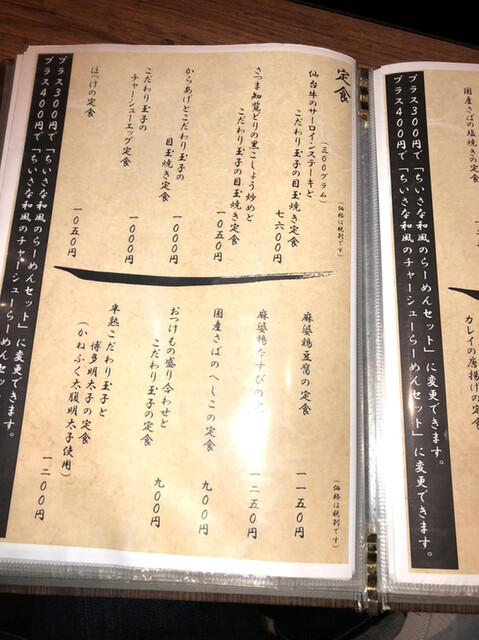 定食
(価格は税別です)
仙台牛のサーロインステーキと
(三〇〇グラム)
こだわり玉子の目玉焼き定食
七六〇〇円
さつま知覧どりの黒こしょう炒めと
こだわり玉子の目玉焼き定食
一〇五〇円
からあげとこだわり玉子の
目玉焼き定食
一〇〇〇円
こだわり玉子の
チャーシューエッグ定食
一〇〇〇円
ほっけの定食
一〇五〇円
麻婆鶏豆腐の定食
一一五〇円
(価格は税別です)
麻婆鶏なすびの
一二五〇円
国産さばのへしこの定食
九〇〇円
おつけもの盛り合わせと
こだわり玉子の定食
九〇〇円
半熟こだわり玉子と
博多明太子の定食
(かねふく太腹明太子使用)
一二〇〇円
プラス300円で「ちいさな和風のらーめんセット」に変更できます。
プラス400円で「ちいさな和風のチャーシューらーめんセット
国産さばの塩焼きの定食
カレイの唐揚げの定食
プラス300円で「ちいさな和風のらーめんセット」に変更できます。
プラス400円で「ちいさな和風のチャーシューらーめんセット」に変更できます。